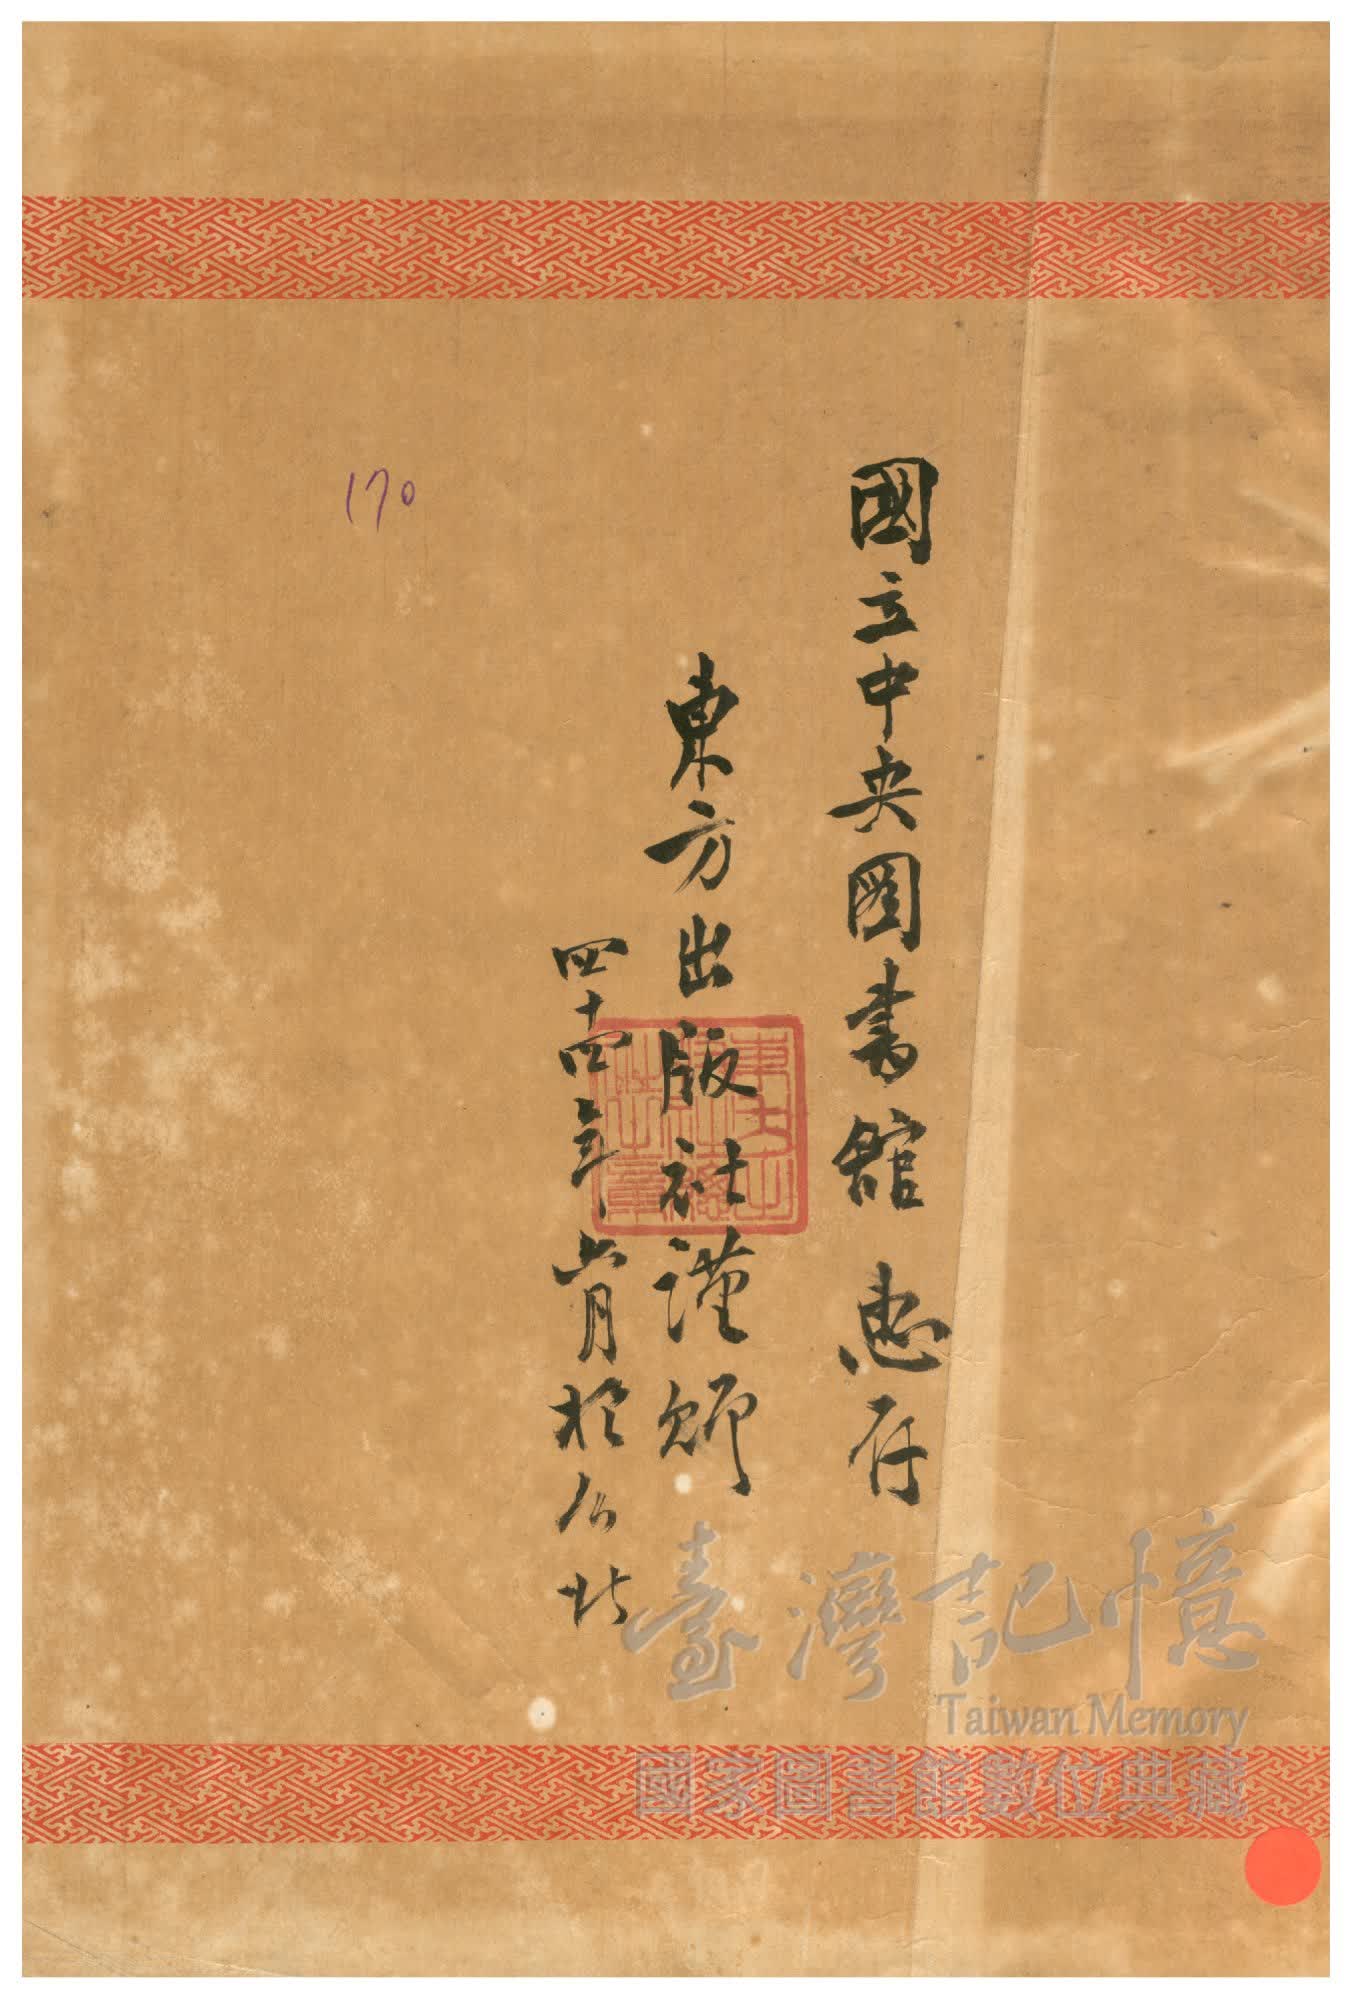 國立中央圖書館 惠存
東方出版社謹
四十四年六月於台北
170
臺灣記憶
Taiwan Memory
國家圖書館數位典藏